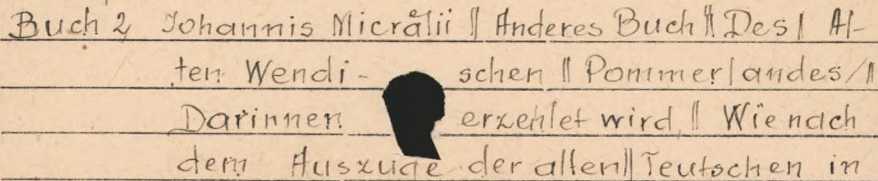 Buch 2 Johannis Micrålii || Anderes Buch || Des | Al-
ten Wendi- schen || Pommerlandes/ ||
Darinnen erzehlet wird || Wie nach
dem Auszuge der alten || Teutschen in